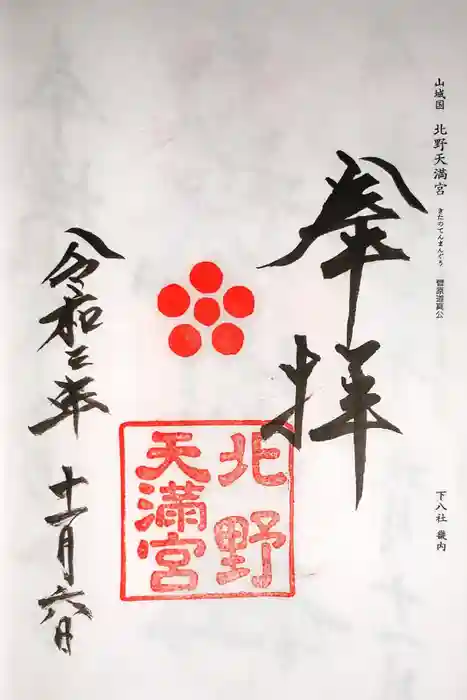 山城国 北野天満宮 きたのてんまんぐう 菅原道真公
下八社 畿内
奉拝
北野
天満宮
令和二年 十一月六日